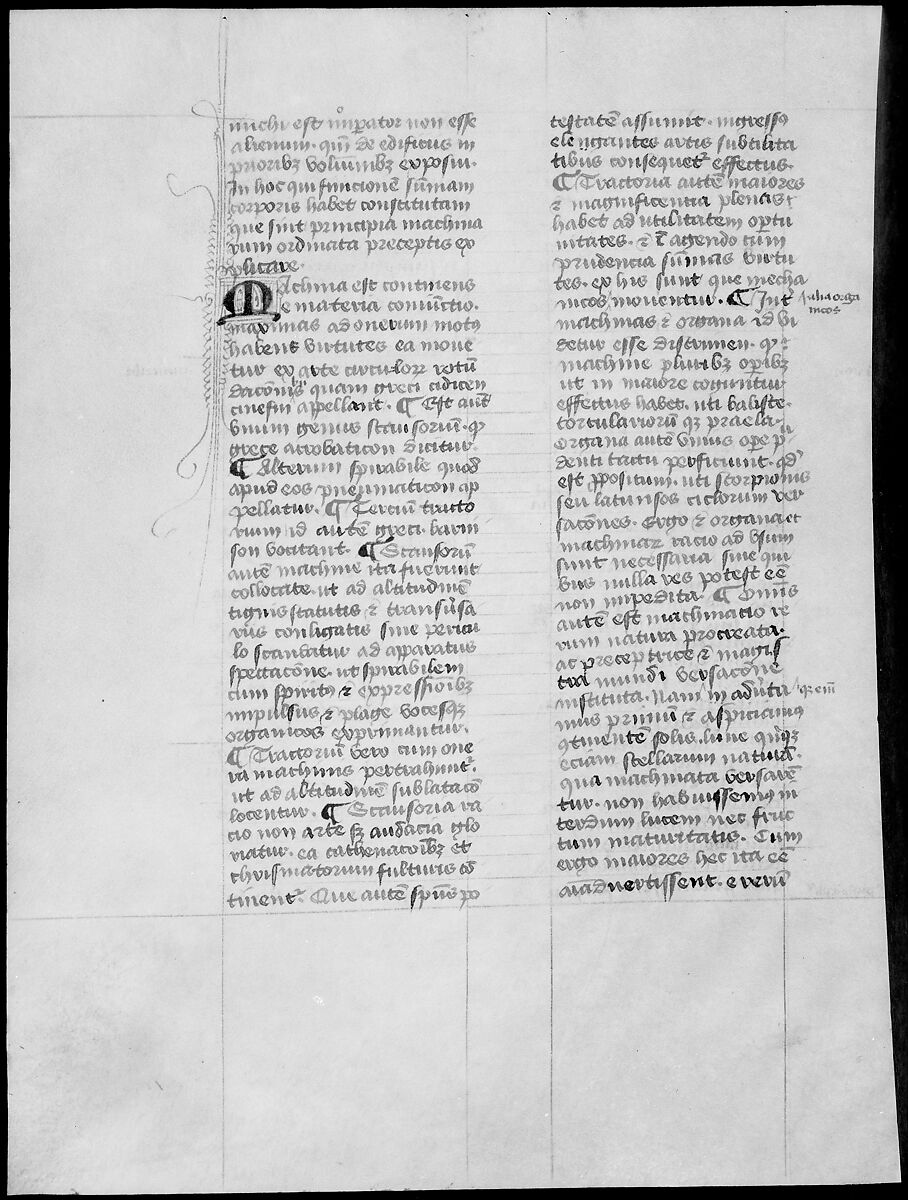 michi est imperator non esse
alienum · quin de edificiis in
prioribz voluminibz exposui ·
In hoc qui finicionē sūmam
corporis habet constitutam
que sint principia machina
rum ordinata preceptis ex
plicare ·
MAchina est continens
e materia coniūctio ·
maximas ad onerum motus
habens virtutes ea moue
tur ex arte circulorum rotūn
quam greci cidicen
cinesin appellant · ¶ Est autē
vnum genus scansoriū · qd
grece acrobaticon dicitur ·
¶ Alterum spirabile quod
apud eos pneumaticon ap
pellatur · ¶ Tercium tracto
rium id autem greci · barui
son vocitant · ¶ Scansoriū
autem machine ita fuerunt
collocate · ut ad altitudinē
tignis statutis ⁊ transuersa
riis conligatis sine pericu
lo scandatur ad apparatus
spectacōne · ut spirabilem
cum spiritus ⁊ expressionibz
impulsus ⁊ plage vocesqz
organicos exprimantur ·
¶ Tractoriū vero cum one
ra machinis pertrahuntr ·
ut ad altitudinē sublata cō
locentur · ¶ Scansoria ra
cio non arte sz audacia glo
riatur · ea cathenacōibz et
chrismatorum fulturis cō
tinentr · Que autē spūs po
testatē assumit · ingressus
elengantes artis subtilita
tibus consequetr effectus ·
¶ Tractoria autē maiores
⁊ magnificencia plenas
habet ad utilitatem oportu
nitates · ⁊ ī agendo cum
prudencia sūmas virtu
tes · ex his sunt que mecha
nicos mouentur · ¶ Intr
alia orga
nicos
machinas ⁊ organa id vi
detur esse discrimen · qd
machine pluribz operibz
ut in maiore coguntur
effectus habet · uti baliste ·
torculariorū qz praela ·
Organa autē vnius ope pru
denti tactu perficiunt · qd
est ppositum · uti scorpionis
seu latunsos ciclorum ver
sacōnes · Ergo ⁊ organa et
machinar racio ad vsum
sunt necessaria sine qui
bus nulla res potest eē
non impedita · ¶ Omnis
autem est machinacio re
rum natura procreata ·
ac preceptrice ⁊ magis
tra mundi versacōne
instituta · Nam in aduerta
mus primū ⁊ aspiciamus
continentē solis · lune quinqz
eciam stellarum naturā ·
qua machinata versarē
tur · non habuissemus in
terdum lucem nec fruc
tum maturitatis · Cum
ergo maiores hec ita eē
aiaduertissent · e rerum